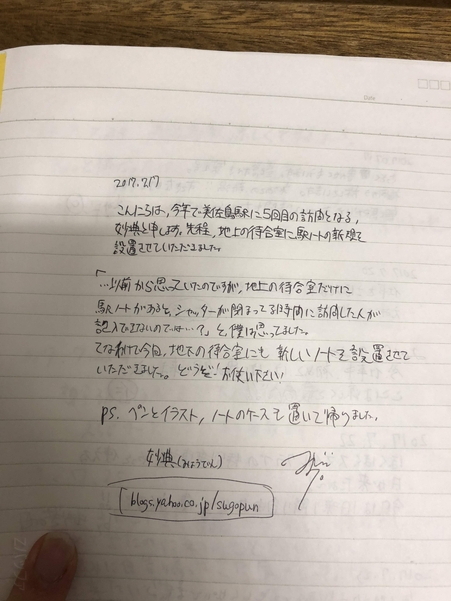 Date
2017.7.17
こんにちは、今年で美佐島駅に5回目の訪問となる、
妙典と申します。先程、地上の待合室に駅ノートの新規を
設置させていただきました。
「…以前から思っていたのですが、地上の待合室だけに
駅ノートがあると、シャッターが閉まってる時間に訪問した人が
記入できないのでは…?」と、僕は思ってました。
てなわけで今回、地下の待合室にも新しいノートを設置させて
いただきました。どうぞ!お使い下さい!
PS. ペンとイラスト, ノートのケースも置いて帰りました。
妙典(みょうでん)
blogs.yahoo.co.jp/sugopun